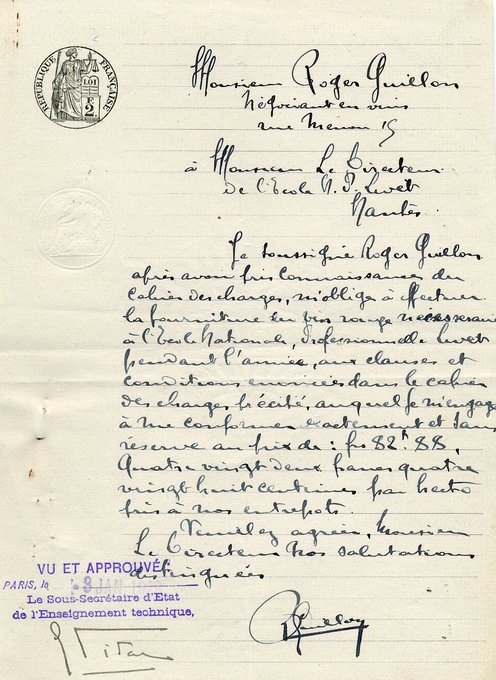 RÉPUBLIQUE FRANÇAISE
LOI
F
2
Monsieur Roger Guillon
Négociant en vins
rue Menou 15
à Monsieur Le Directeur
de l'Ecole N. P. Livet
Nantes
Je soussigné Roger Guillon
après avoir pris connaissance du
cahier des charges, m'oblige à effectuer
la fourniture du vin rouge necessaire
à l'Ecole Nationale, Professionnelle Livet
pendant l'année, aux clauses et
conditions énoncées dans le cahier
des charges précité, auquel je m'engage
à me conformer exactement et sans
réserve au prix de : frs 82 88,
Quatre vingt deux francs quatre
vingt huit centimes par hecto
pris à nos entrepots.
Veuillez agréer, Monsieur
Le Directeur nos salutations
distinguées
VU ET APPROUVÉ:
PARIS, le JAN
Le Sous-Secrétaire d'Etat
de l'Enseignement technique,
RGuillon